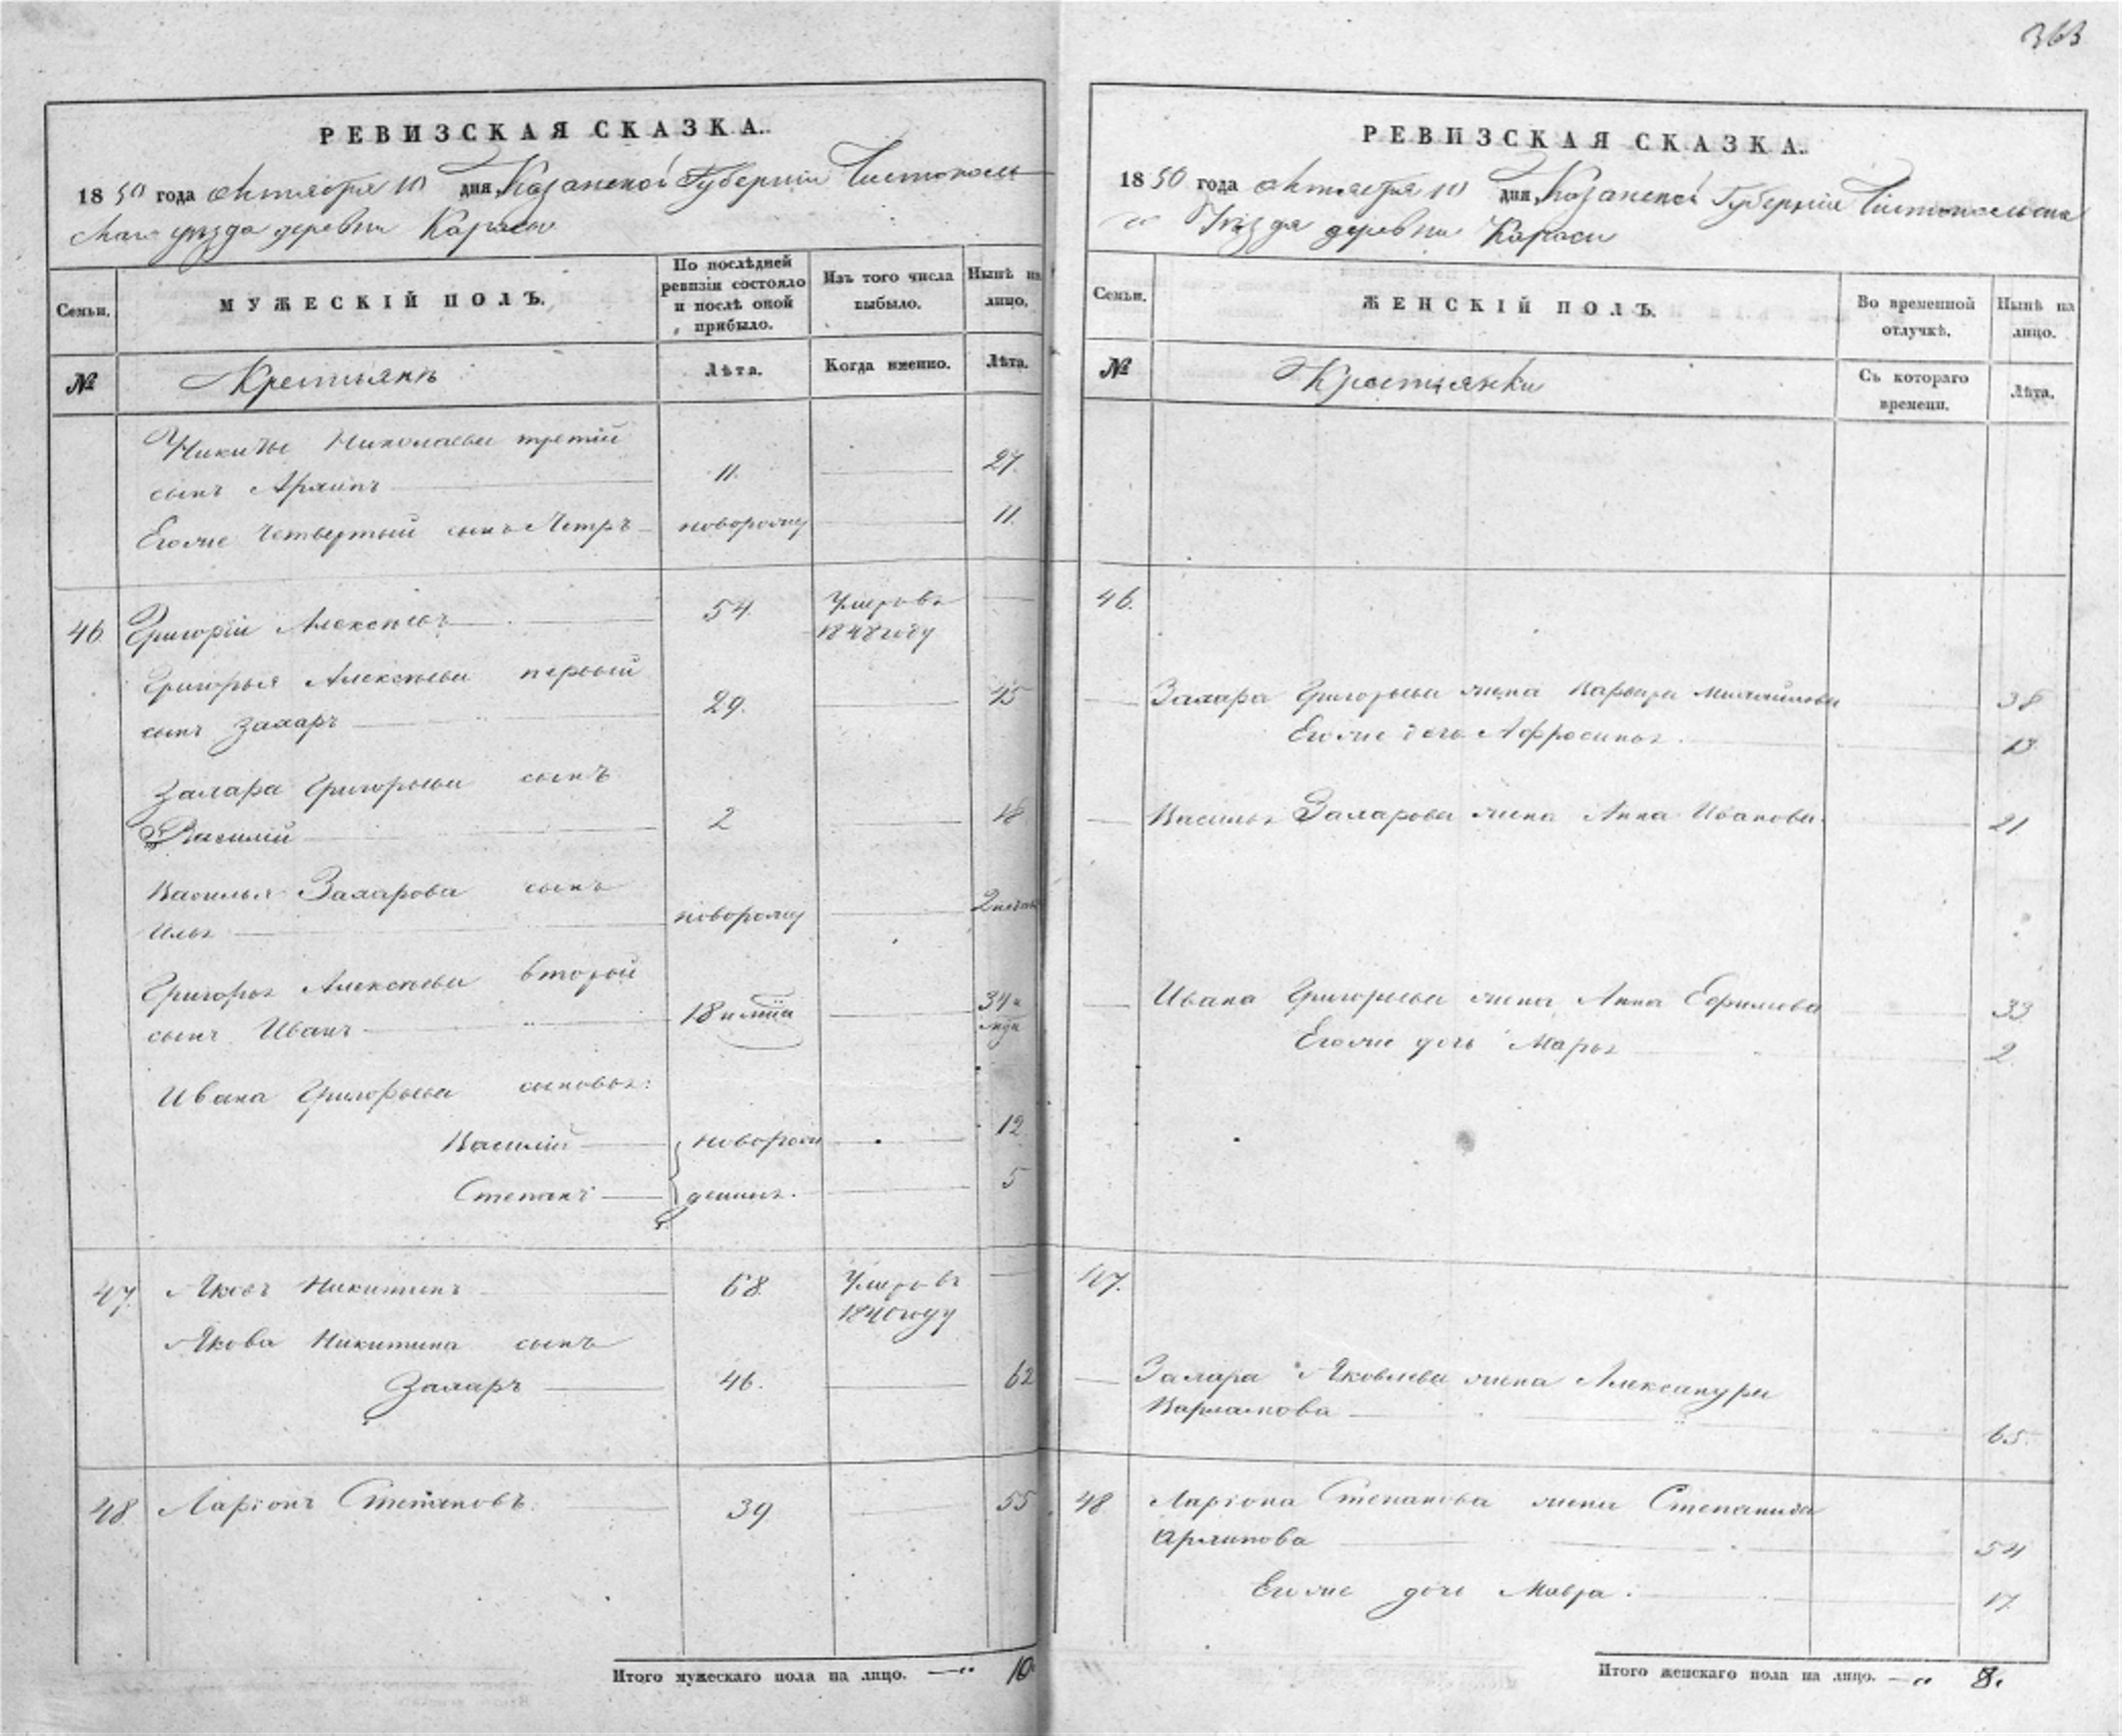 363
РЕВИЗСКАЯ СКАЗКА.
1850 года Октября 10 дня Казанской Губернии Чистополь
скаго уѣзда деревни Караси
Семьи.
МУЖЕСКІЙ ПОЛЪ.
По послѣдней
ревизіи состояло
и послѣ оной
прибыло.
Изъ того числа
выбыло.
Нынѣ на
лицо.
№
Крестьянъ
Лѣта.
Когда именно.
Лѣта.
Никиты Николаева третій
сынъ Архипъ 11. 27.
Егоже четвертый сынъ Петръ новорожд 11.
46. Григорій Алексѣевъ 54. Умеръ въ
1848 году
Григорья Алексѣева первый
сынъ Захаръ 29. 45
Захара Григорьева сынъ
Василій 2 18
Василья Захарова сынъ
Илья новорожд 2 недѣль
Григорья Алексѣева второй
сынъ Иванъ 18 34
Ивана Григорьева сыновья:
Василій новорож 12
Степанъ денные. 5
47. Яковъ Никитинъ 68. Умеръ въ
1840 году
Якова Никитина сынъ
Захаръ 46. 62
48. Ларіонъ Степановъ. 39 55
Итого мужескаго пола на лицо. 10.
РЕВИЗСКАЯ СКАЗКА.
1850 года Октября 10 дня Казанской Губерніи Чистопольска
го Уѣзда деревни Караси
Семьи.
ЖЕНСКІЙ ПОЛЪ.
Во временной
отлучкѣ.
Нынѣ на
лицо.
№
Крестьянки
Съ котораго
времени.
Лѣта.
46.
Захара Григорьева жена Варвара Михайлова 38
Егоже дочь Афросинья. 13
Василья Захарова жена Анна Иванова. 21
Ивана Григорьева жена Анна Ефимова 33
Егоже дочь Марья 2.
47.
Захара Яковлева жена Александра
Варламова 65.
48 Ларіона Степанова жена Степанида
Архипова 54
Егоже дочь Мавра. 17.
Итого женскаго пола на лицо. 8.